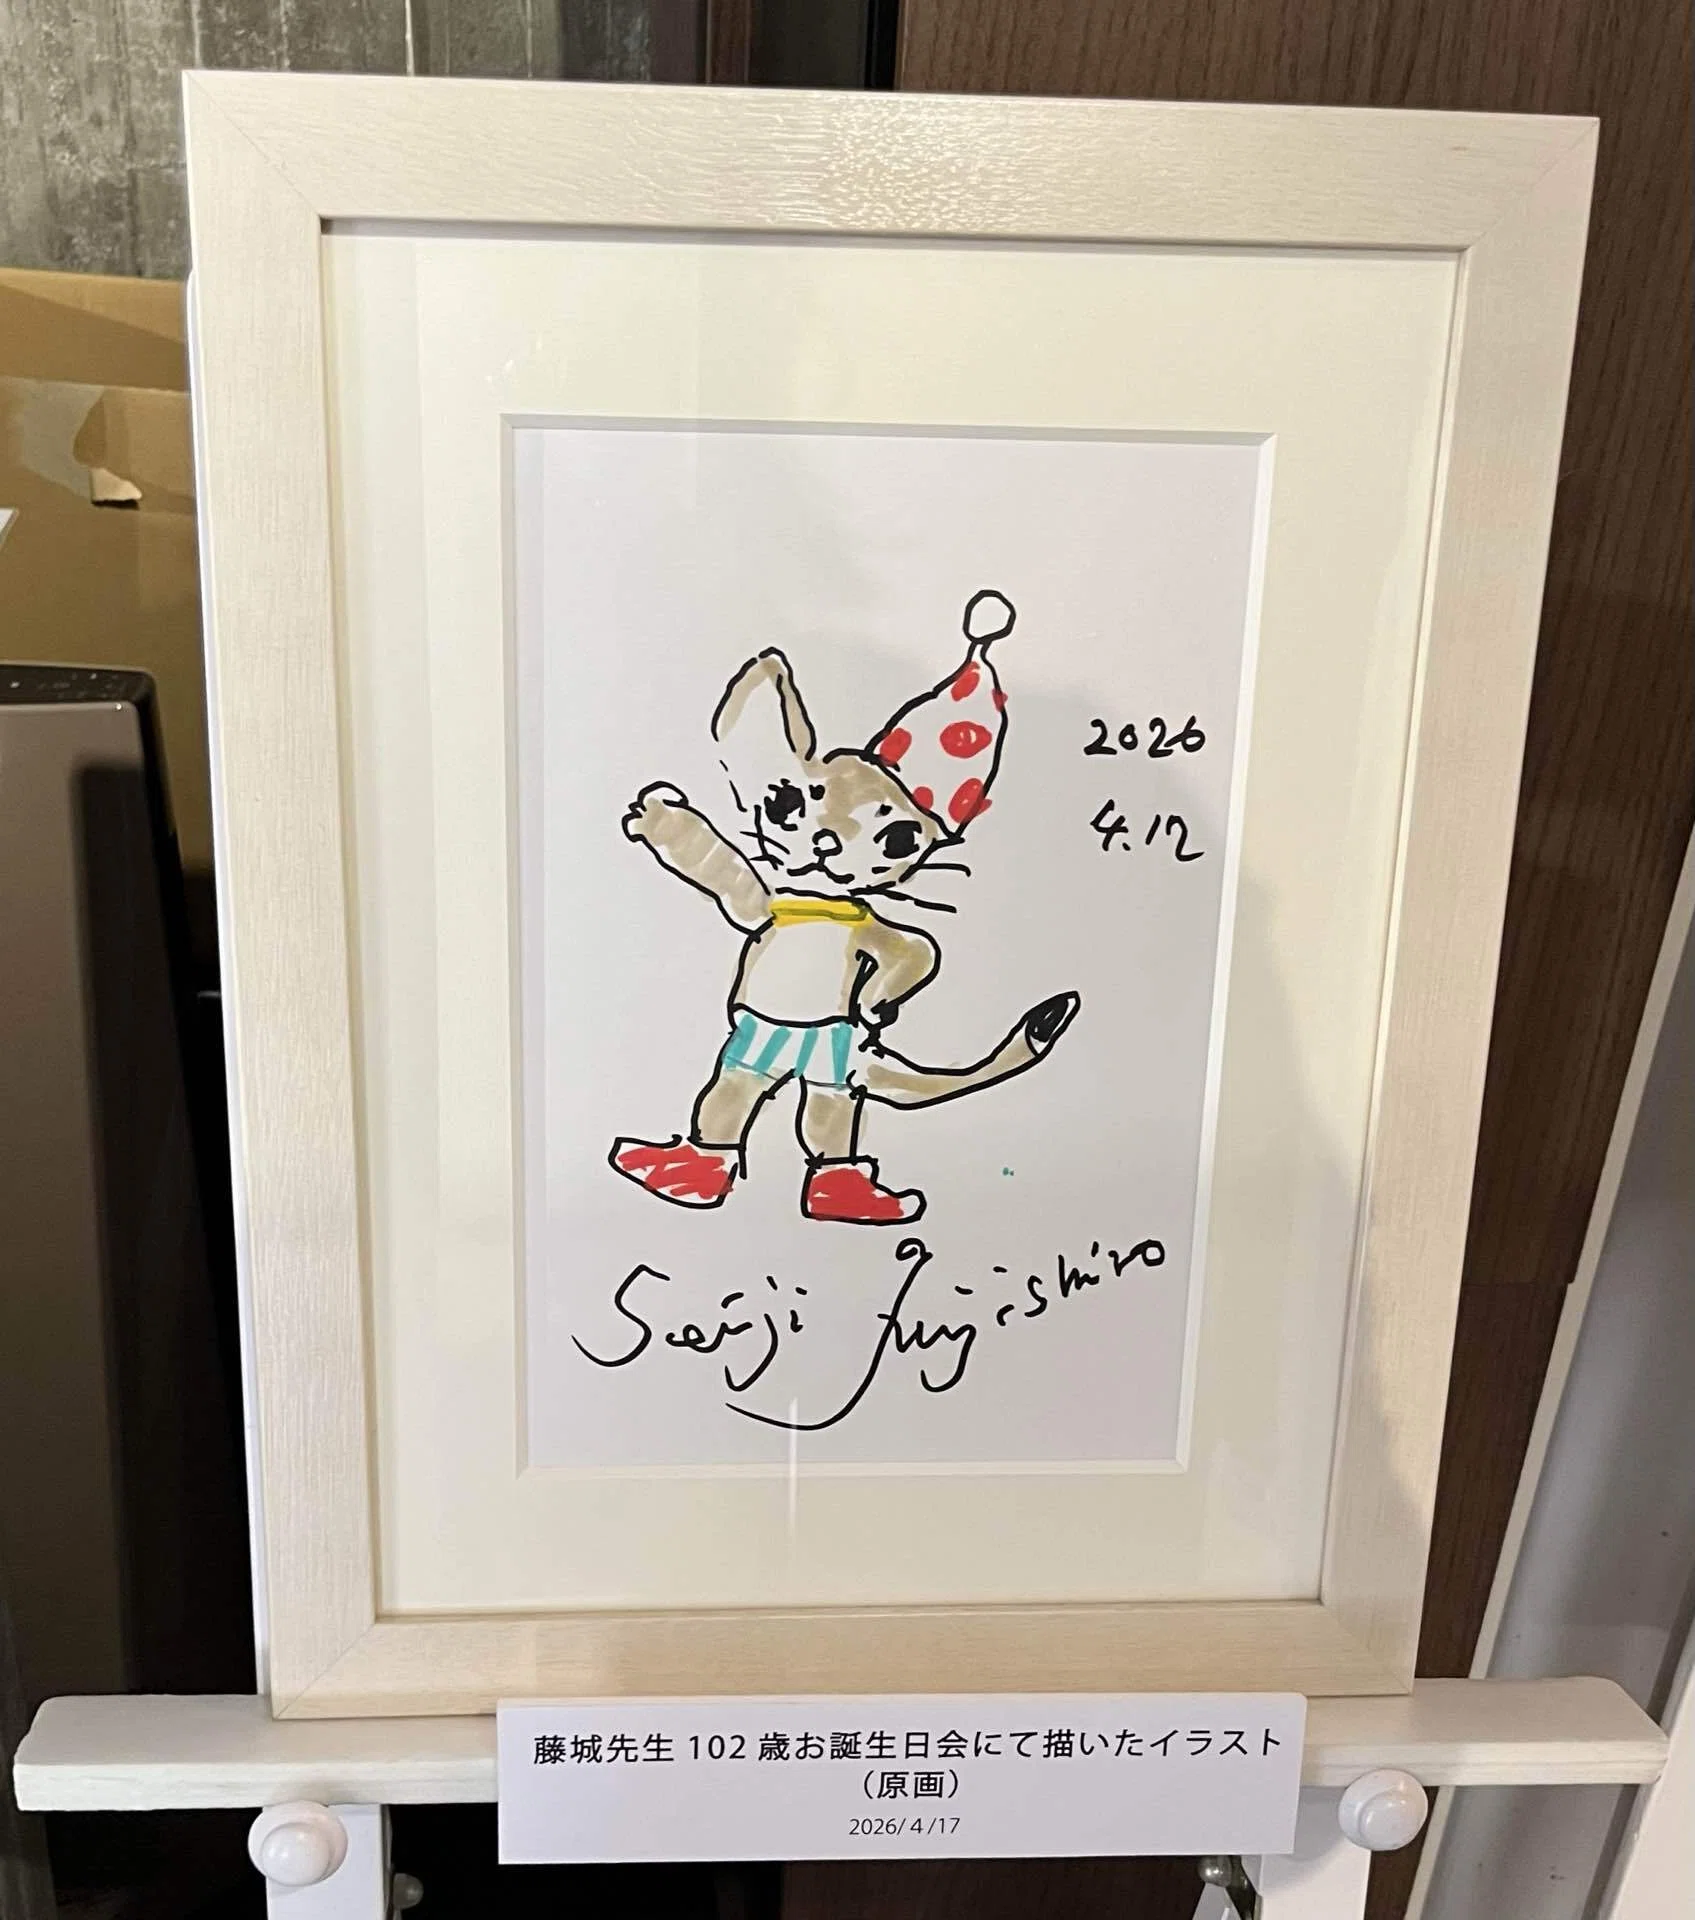 2026
4.17
Seiji Fujishiro
藤城先生 102 歳お誕生日会にて描いたイラスト
（原画）
2026/ 4 /17